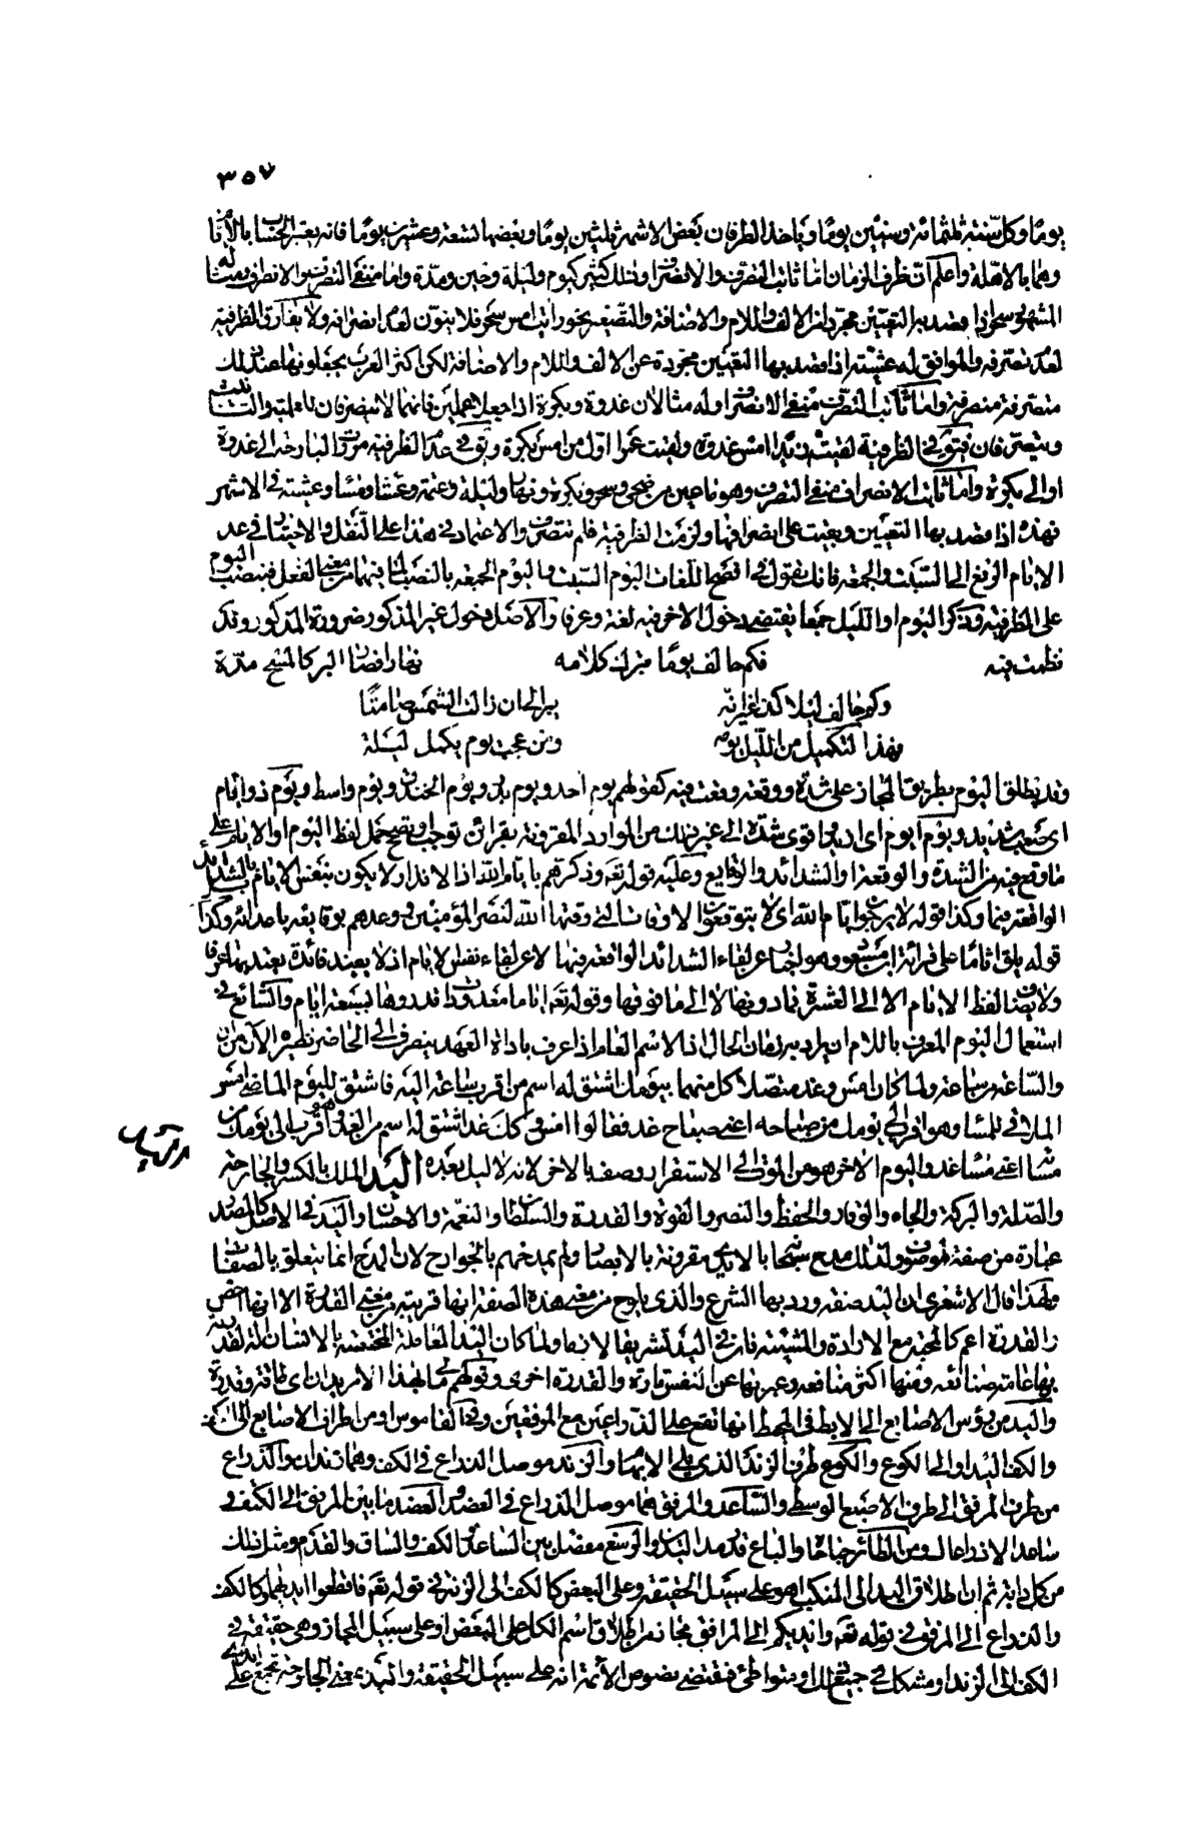 ٣٥٧
يوما وكل سنة ثلثمائة وستين يوما وياخذ الطرفان بعض الاشهر ثلثين يوما وبعضها تسعة وعشرين يوما فانه يعتبر الحساب بالايام
وهما بالاهلة واعلم ان ظرف الزمان اما ثابت التصرف والانصراف وذلك كثير كيوم وليلة وحين ومدة واما منفي التصرف والانصراف ومثاله
المشهور سحر اذا قصد به التعيين مجردا من الالف واللام والاضافة والتصغير نحو رايت امس سحر فلا ينون لعدم انصرافه ولا يفارق الظرفية
لعدم تصرفه والموافق له عشية اذا قصد بها التعيين مجردة عن الالف واللام والاضافة لكن اكثر العرب يجعلونها عند ذلك
متصرفة منصرفة واما ثابت التصرف منفي الانصراف وله مثالان غدوة وبكرة اذا جعلا علمين فانهما لا ينصرفان للعلمية والتانيث
ويتصرفان فتقول في الظرفية لقيت زيدا امس غدوة ولقيت عمرا اول من امس بكرة وتقول في عدم الظرفية مررت البارحة الى غدوة
او الى بكرة واما ثابت الانصراف منفي التصرف وهو ما عين من ضحى وسحر وبكرة ونهار وليلة وعتمة وعشاء ومساء وعشية في الاشهر
فهذه اذا قصد بها التعيين وبقيت على انصرافها ولزمت الظرفية فلم تتصرف والاعتماد في هذا على النقل والاختيار في عد
الايام الرفع الى السبت والجمعة فانك تقول في افصح اللغات اليوم السبت واليوم الجمعة بالنصب لما فيهما من معنى الفعل فينصب اليوم
على الظرفية وذكر اليوم او الليل جمعا يقتضي دخول الاخر فيه لغة وعرفا والاصل دخول غير المذكور ضرورة المذكور وقد
نظمت فيه فكم حالف يوما بترك كلامه نهارا فصار البر كالمسح مدة
وكم حالف ليلا كذا غير انه يبر الى ان زالت الشمس ضامنا
فهذا لتكميل من الليل يومه ومن عجب يوم يكمل ليلة
وقد يطلق اليوم بطريق المجاز على شدة ووقعة وقعت فيه كقولهم يوم احد ويوم بدر ويوم الخندق ويوم واسط ويوم ذو ايام
اي صعب شديد ويوم ايوم اي
ما وقع فيه من الشدة والوقعة والشدائد والوقايع وعليه قوله تع وذكرهم بايام الله اذ الانذار لا يكون بنفس الايام بل بالشدائد
الواقعة فيها وكذا قوله لا يرجون ايام الله اي لا يتوقعون الاوقات التي وقتها الله لنصر المؤمنين ووعدهم بوقايعه باعدائه وكذا
قوله يلق اثاما على قراءة ابن مسعود وهو اخبار عن لقاء الشدائد الواقعة فيها لا عن لقاء نفس الايام اذ لا يفيد فائدة يعتد بها عرفا
ولا يضاف لفظ الايام الا الى العشرة فما دونها لا الى ما فوقها وقوله تع اياما معدودات قدروها بتسعة ايام والشائع في
استعمال اليوم المعرف باللام ان يراد به زمان الحال اذ الاسم العام اذا عرف باداة العهد ينصرف الى الحاضر نظيره الآن من ان
والساعة من ساعة ولما كان امس وغد متصلا كل منهما بيومك اشتق له اسم من اقرب ساعة اليه فاشتق لليوم الماضي امس
الملاقي للمساء وهو اقرب الى يومك من صباحه اعني صباح غد فقالوا امس وكذا غد اشتق له اسم من الغدو وهو اقرب الى يومك من
مسائه اعني مساء غد واليوم الاخر هو من الموت الى الاستقرار وصف بالاخر لانه لا ليل بعده اليد الملك بالكسر والجارحة
والصلة والبركة والجاه والوقار والحفظ والنصر والقوة والقدرة والسلطان والنعمة والاحسان واليد في الاصل كالمصدر
عبارة من صفة لموصوف ولذلك مدح سبحانه بالايدي مقرونة بالابصار ولم يمدحهم بالجوارح لان المدح انما يتعلق بالصفات
ولهذا قال الاشعري ان اليد صفة ورد بها الشرع والذي يلوح من معنى هذه الصفة انها قريبة من معنى القدرة الا انها اخص
والقدرة اعم كالمحبة مع الارادة والمشيئة فان في اليد تشريفا لازما ولما كان اليد العاملة المختصة بالانسان آلة لقدرته
بها عامة صنائعه ومنها اكثر منافعه وعبر بها عن النفس تارة والقدرة اخرى وقولهم مالي بهذا الامر يدان اي طاقة وقدرة
واليد من رؤس الاصابع الى الابط في المحيط انها تقع على الذراعين مع المرفقين وفي القاموس او من اطراف الاصابع الى الكتف
والكف اليد او الى الكوع والكوع طرف الزند الذي يلي الابهام والزند موصل الذراع في الكف وهما زندان والذراع
من طرف المرفق الى طرف الاصبع الوسطى والساعد والمرفق هما موصل الذراع في العضد والعضد ما بين المرفق الى الكتف و
ساعداك ذراعاك ومن الطائر جناحاه والباع قدر مد اليدين والرسغ مفصل بين الساعد والكف والساق والقدم ومثل ذلك
من كل دابة ثم ان اطلاق اليد الى المنكب هو على سبيل الحقيقة وعلى البعض كالكف الى الزند في قوله تع فاقطعوا ايديهما وكالكف
والذراع الى المرفق في قوله تع وايديكم الى المرافق مجاز من اطلاق اسم الكل على البعض او على سبيل المجاز وهي حقيقة في
الكف الى الزند او مشكك في جميع ذلك او متواطئ فمقتضى نصوص الأئمة انه على سبيل الحقيقة واليد بمعنى الجارحة تجمع على ايدي